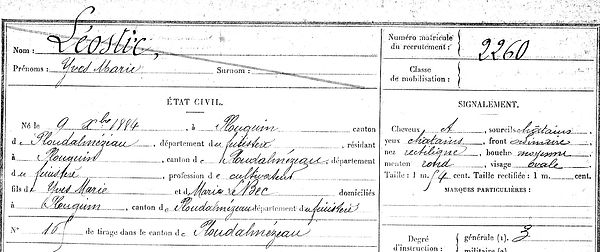 Nom : Léostic,
Prénoms : Yves Marie Surnom :
ÉTAT CIVIL.
Né le 9 Xbre 1884, à Plouguin canton
de Ploudalmézeau, département du finistère, résidant
à Plouguin, canton de Ploudalmézeau, département
du finistère, profession de cultivateur
fils de Yves Marie et de Marie domiciliés
à Plouguin, canton de Ploudalmézeau département du finistère
N° 15 de tirage dans le canton de Ploudalmézeau
Numéro matricule du recrutement : 2260
Classe de mobilisation :
SIGNALEMENT.
Cheveux et, sourcils châtains
yeux chatains, front ordinaire
nez rectiligne, bouche moyenne
menton rond, visage ovale
Taille : 1 m. 54 cent. Taille rectifiée : 1 m. cent.
MARQUES PARTICULIÈRES :
Degré d'instruction : générale (1). 3
militaire (2)